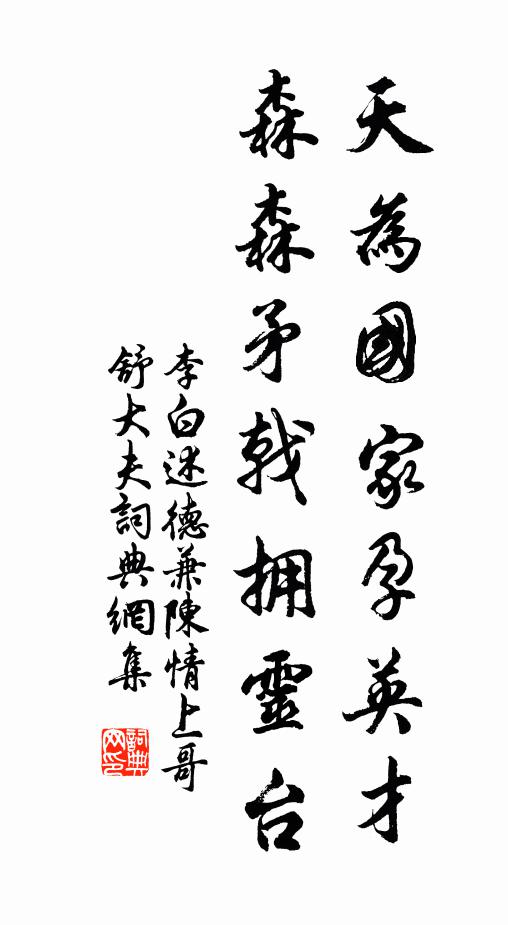 天為國家孕英才
森森矛戟拥靈台
李白述德兼陳情上哥
舒大夫詞典網集
詞典
网印